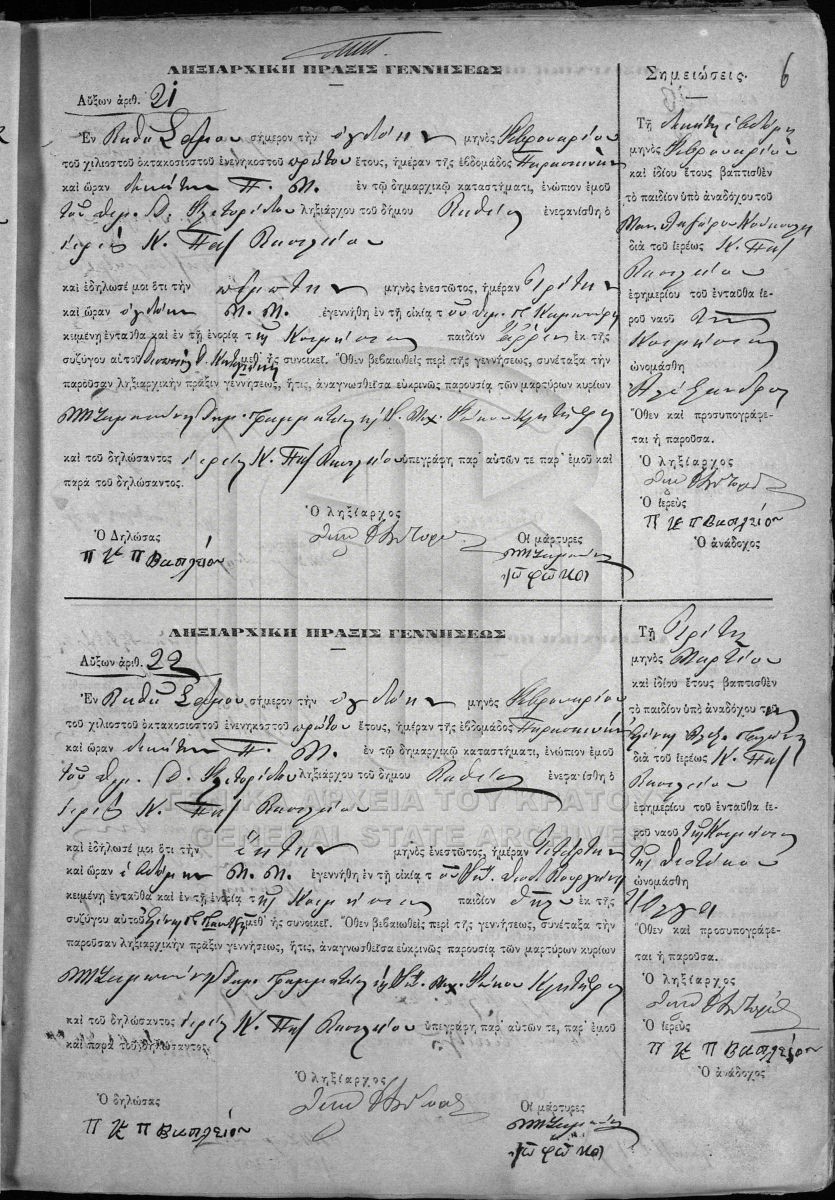 6
ΛΗΞΙΑΡΧΙΚΗ ΠΡΑΞΙΣ ΓΕΝΝΗΣΕΩΣ
Αὔξων ἀριθ. 21
Ἐν Βαθεῖ Σάμου σήμερον τὴν ὀγδόην μηνὸς Φεβρουαρίου
τοῦ χιλιοστοῦ ὀκτακοσιοστοῦ ἐνενηκοστοῦ πρώτου ἔτους, ἡμέραν τῆς ἑβδομάδος Παρασκευὴν
καὶ ὥραν δεκάτην Π. Μ. ἐν τῷ δημαρχικῷ καταστήματι, ἐνώπιον ἐμοῦ
τοῦ ληξιάρχου τοῦ δήμου Βαθέος ἐνεφανίσθη ὁ
ἱερεὺς Κ. Παπ Βασιλείου
καὶ ἐδήλωσέ μοι ὅτι τὴν πέμπτην μηνὸς ἐνεστῶτος, ἡμέραν Τρίτην
καὶ ὥραν ὀγδόην Μ. Μ. ἐγεννήθη ἐν τῇ οἰκίᾳ τοῦ
κειμένῃ ἐνταῦθα καὶ ἐν τῇ ἐνορίᾳ τῆς Κοιμήσεως παιδίον ἄρρεν ἐκ τῆς
συζύγου αὐτοῦ μεθ' ἧς συνοικεῖ. Ὅθεν βεβαιωθεὶς περὶ τῆς γεννήσεως, συνέταξα τὴν
παροῦσαν ληξιαρχικὴν πρᾶξιν γεννήσεως, ἥτις, ἀναγνωσθεῖσα εὐκρινῶς παρουσίᾳ τῶν μαρτύρων κυρίων
γραμματέως Φώκου κλητῆρος
καὶ τοῦ δηλώσαντος ἱερέως Κ. Παπ Βασιλείου ὑπεγράφη παρ' αὐτῶν τε παρ' ἐμοῦ καὶ
παρὰ τοῦ δηλώσαντος.
Ὁ ληξίαρχος
Ὁ Δηλώσας
Οἱ μάρτυρες
Π Κ Π Βασιλείου
φῶκος
Σημειώσεις.
Τῇ δεκάτῃ ἑβδόμῃ
μηνὸς Φεβρουαρίου
καὶ ἰδίου ἔτους βαπτισθὲν
τὸ παιδίον ὑπὸ ἀναδόχου τοῦ
διὰ τοῦ ἱερέως Κ. Παπ
Βασιλείου
ἐφημερίου τοῦ ἐνταῦθα ἱε-
ροῦ ναοῦ τῆς
Κοιμήσεως
ὠνομάσθη
Ἀλέξανδρος
Ὅθεν καὶ προσυπογράφε-
ται ἡ παροῦσα.
Ὁ ληξίαρχος
Ὁ ἱερεὺς
Π Κ Π Βασιλείου
Ὁ ἀνάδοχος
ΛΗΞΙΑΡΧΙΚΗ ΠΡΑΞΙΣ ΓΕΝΝΗΣΕΩΣ
Αὔξων ἀριθ. 22
Ἐν Βαθεῖ Σάμου σήμερον τὴν ὀγδόην μηνὸς Φεβρουαρίου
τοῦ χιλιοστοῦ ὀκτακοσιοστοῦ ἐνενηκοστοῦ πρώτου ἔτους, ἡμέραν τῆς ἑβδομάδος Παρασκευὴν
καὶ ὥραν δεκάτην Π. Μ. ἐν τῷ δημαρχικῷ καταστήματι, ἐνώπιον ἐμοῦ
τοῦ ληξιάρχου τοῦ δήμου Βαθέος ἐνεφανίσθη ὁ
ἱερεὺς Κ. Παπ Βασιλείου
ΓΕΝΙΚΑ ΑΡΧΕΙΑ ΤΟΥ ΚΡΑΤΟΥΣ
GENERAL STATE ARCHIVES
καὶ ἐδήλωσέ μοι ὅτι τὴν ἕκτην μηνὸς ἐνεστῶτος, ἡμέραν Τετάρτην
καὶ ὥραν ἑβδόμην Μ. Μ. ἐγεννήθη ἐν τῇ οἰκίᾳ τοῦ
κειμένῃ ἐνταῦθα καὶ ἐν τῇ ἐνορίᾳ τῆς Κοιμήσεως παιδίον θῆλυ ἐκ τῆς
συζύγου αὐτοῦ μεθ' ἧς συνοικεῖ. Ὅθεν βεβαιωθεὶς περὶ τῆς γεννήσεως, συνέταξα τὴν
παροῦσαν ληξιαρχικὴν πρᾶξιν γεννήσεως, ἥτις, ἀναγνωσθεῖσα εὐκρινῶς παρουσίᾳ τῶν μαρτύρων κυρίων
γραμματέως Φώκου κλητῆρος
καὶ τοῦ δηλώσαντος ἱερέως Κ. Παπ Βασιλείου ὑπεγράφη παρ' αὐτῶν τε, παρ' ἐμοῦ
καὶ παρὰ τοῦ δηλώσαντος.
Ὁ ληξίαρχος
Ὁ δηλώσας
Οἱ μάρτυρες
Π Κ Π Βασιλείου
φῶκος
Τῇ Τρίτῃ
μηνὸς Μαρτίου
καὶ ἰδίου ἔτους βαπτισθὲν
τὸ παιδίον ὑπὸ ἀναδόχου τῆς
διὰ τοῦ ἱερέως Κ. Παπ
Βασιλείου
ἐφημερίου τοῦ ἐνταῦθα ἱε-
ροῦ ναοῦ τῆς Κοιμήσεως
τῆς Θεοτόκου
ὠνομάσθη
Ὄλγα
Ὅθεν καὶ προσυπογράφε-
ται ἡ παροῦσα.
Ὁ ληξίαρχος
Ὁ ἱερεὺς
Π Κ Π Βασιλείου
Ὁ ἀνάδοχος